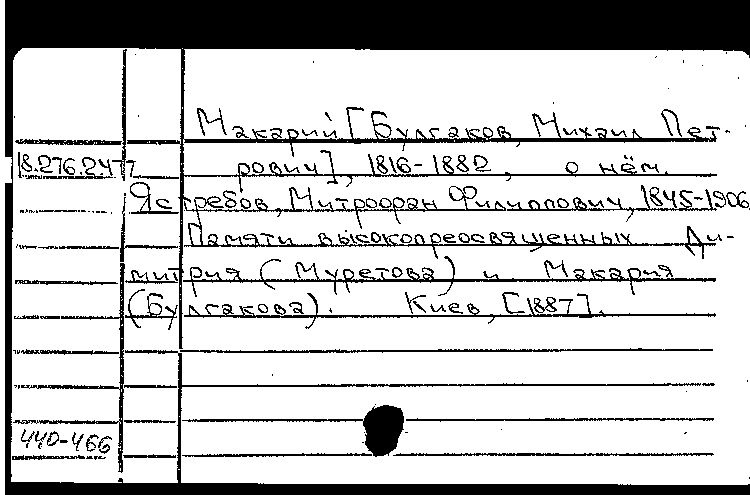 Макарий [Булгаков, Михаил Пет-
18.276.2477 рович], 1816-1882, о нём.
Ястребов, Митрофан Филиппович, 1845-1906
Памяти высокопреосвященных Ди-
митрия (Муретова) и Макария
(Булгакова). Киев, [1887].
440-466